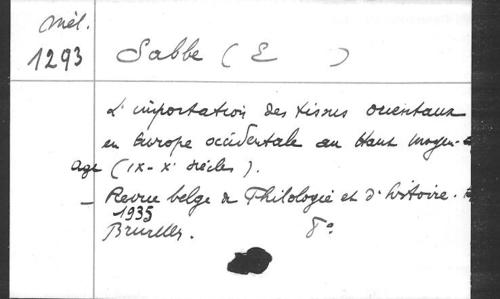 Mél.
1293
Sabbe (E )
L'importation des tissus orientaux
en Europe occidentale au Haut Moyen-
age (IX-Xe siècles).
- Revue belge de Philologie et d'histoire.
1935
Bruxelles. 8°